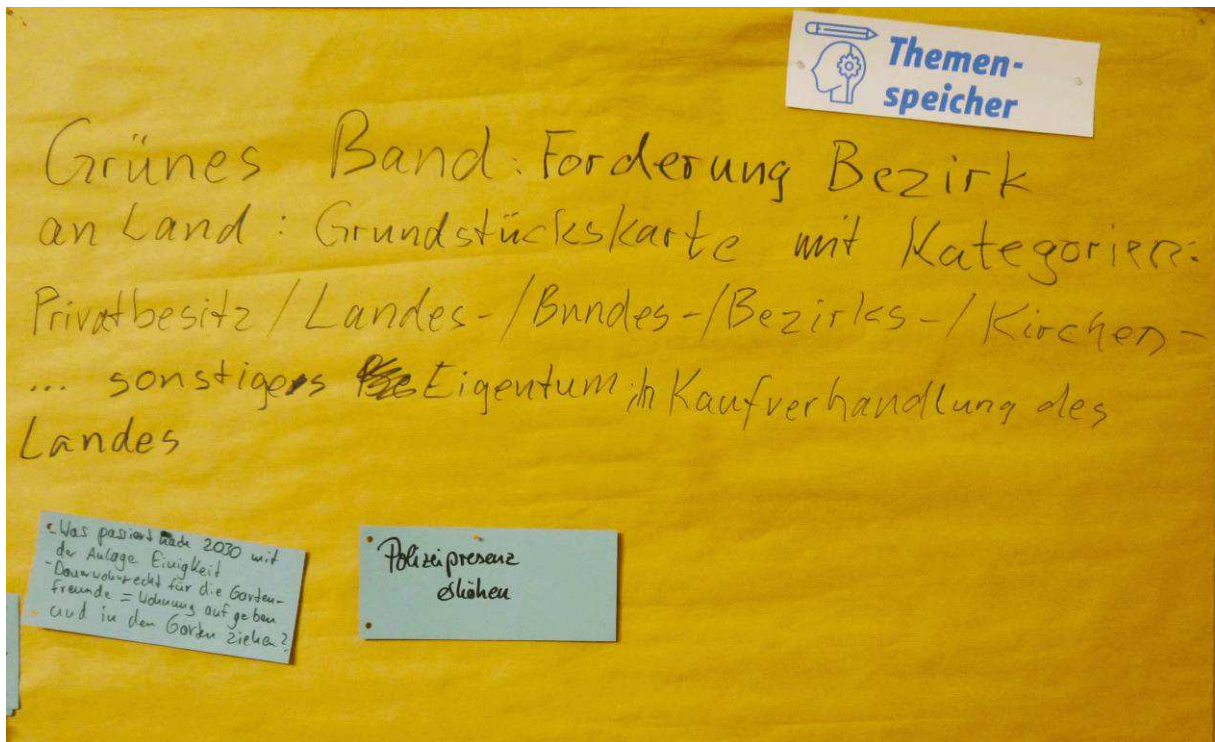 Themen-
speicher
Grünes Band: Forderung Bezirk
an Land: Grundstückskarte mit Kategorien:
Privatbesitz / Landes- / Bundes- / Bezirks- / Kirchen-
... sonstiges Eigentum in Kaufverhandlung des
Landes
- Was passiert nach 2030 mit
der Anlage Einigkeit
- Dauerwohnrecht für die Garten-
freunde = Wohnung aufgeben
und in den Garten ziehen?
Polizeipresenz
erhöhen